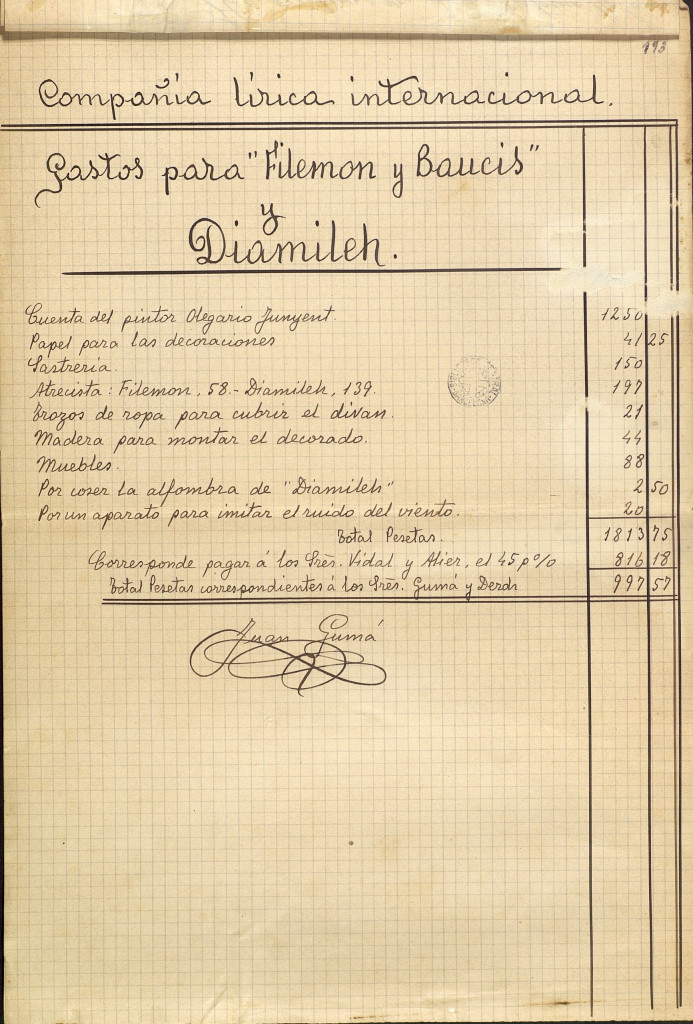 193
Compañía lírica internacional.
Gastos para "Filemon y Baucis"
y
Diamileh.
Cuenta del pintor Olegario Junyent. 1250
Papel para las decoraciones 41 25
Sastreria. 150
Atrecista: Filemon, 58.- Diamileh, 139. 197
Trozos de ropa para cubrir el divan. 21
Madera para montar el decorado. 44
Muebles. 88
Por coser la alfombra de "Diamileh" 2 50
Por un aparato para imitar el ruido del viento. 20
Total Pesetas. 1813 75
Corresponde pagar á los Srès. Vidal y Alier, el 45 p% 816 18
Total Pesetas correspondientes á los Srès. Gumá y 997 57
Juan Gumá